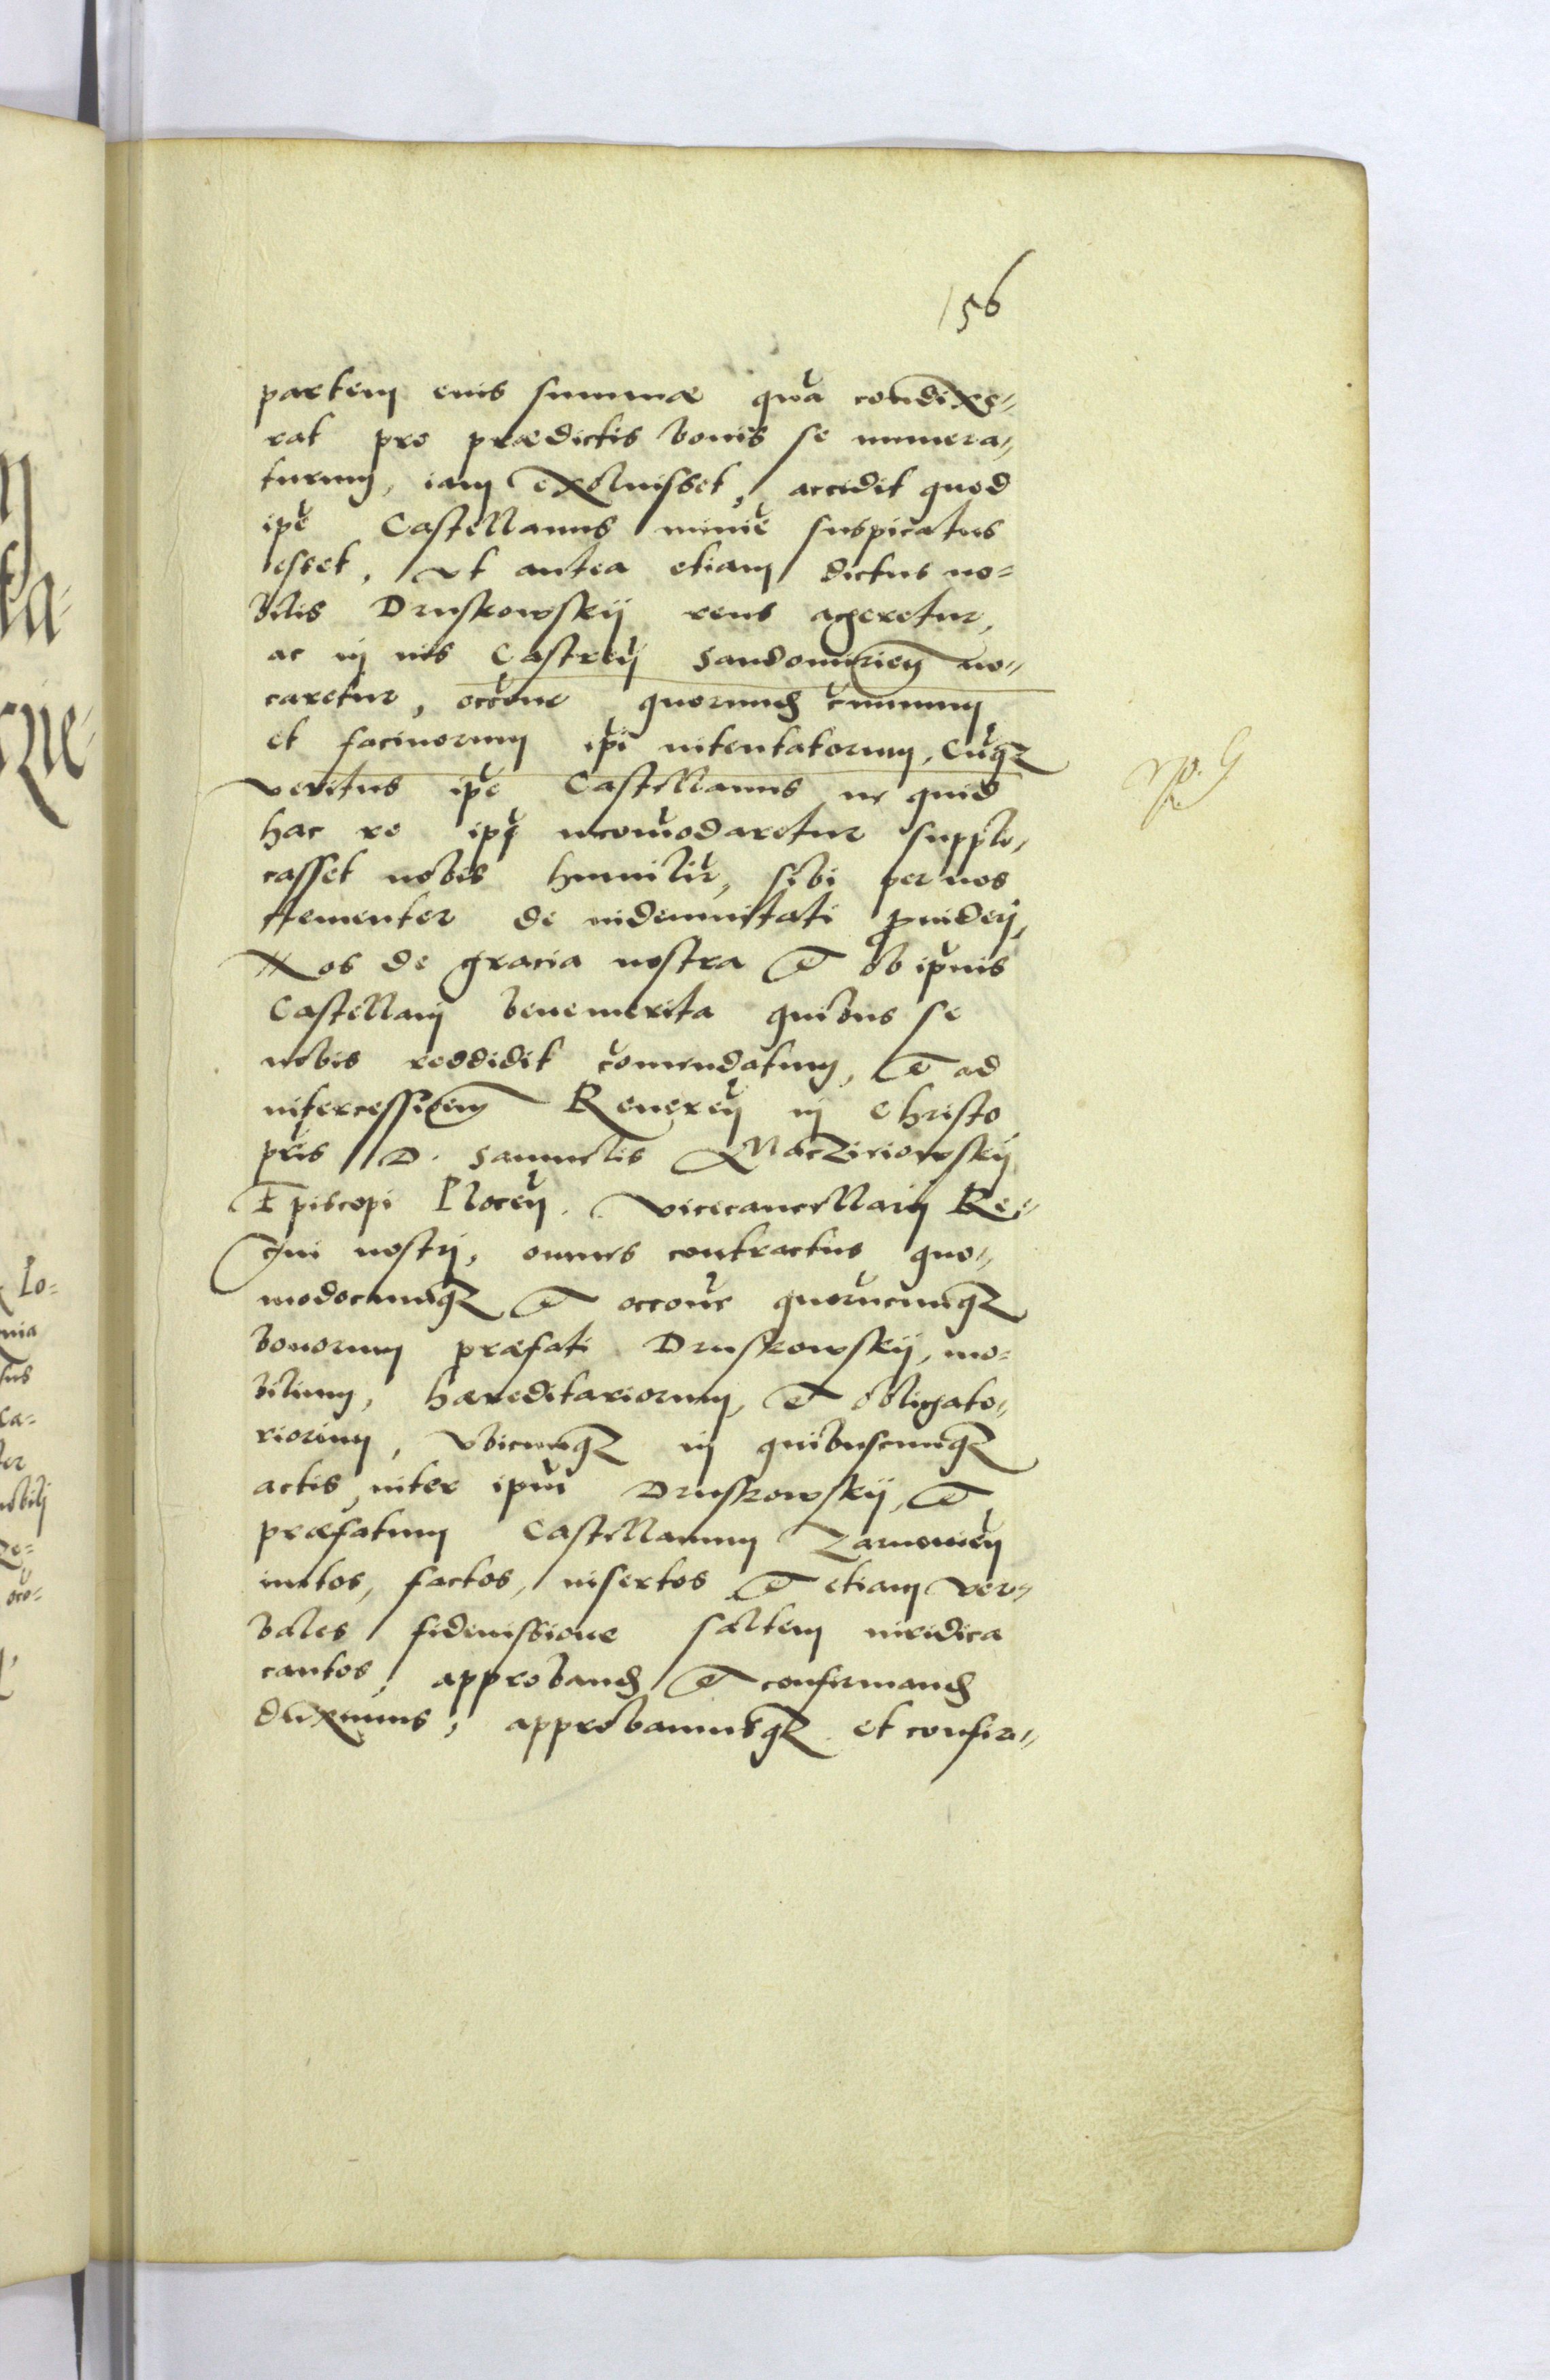 156
partem eius summæ qua condixe„
rat pro prædictis bonis se numera„
turum, iam exoluisset, accidit quod
ipe Castellanus minime suspicatus
esset, vt antea etiam dictus no=
bilis Druskowskij reus ageretur,
ac in ius Castren Sandomirien uo„
caretur, occone quorund criminum
et facinorum ipi intentatorum, Cumqz
veritus ipe Castellanus ne quid
hac re ipe incomodaretur supplo„
casset nobis humilir, sibi per nos
clementer de indemnitati prouideri,
Nos de gracia nostra et ob ipius
Castellani benemerita quibus se
nobis reddidit comendatum, et ad
intercessionem Reueren in Christo
pris D. Samuelis Maczieiowskij
Episcopi Plocen. Vicecancellarij Re„
gni nostri, omnes contractus quo„
modocumqz et occone quorucumqz
bonorum præfati Druskowskij, mo=
bilium, hæreditariorum, et obligato„
riorum, vbicumqz in quibuscumqz
actis, inter ipm Druskowskij, et
præfatum Castellanum Zarnowien
initos, factos, insertos et etiam ver„
bales fideiussione saltem iuridica
cautos, approband et confirmand
duximus, approbamusqz et confir„